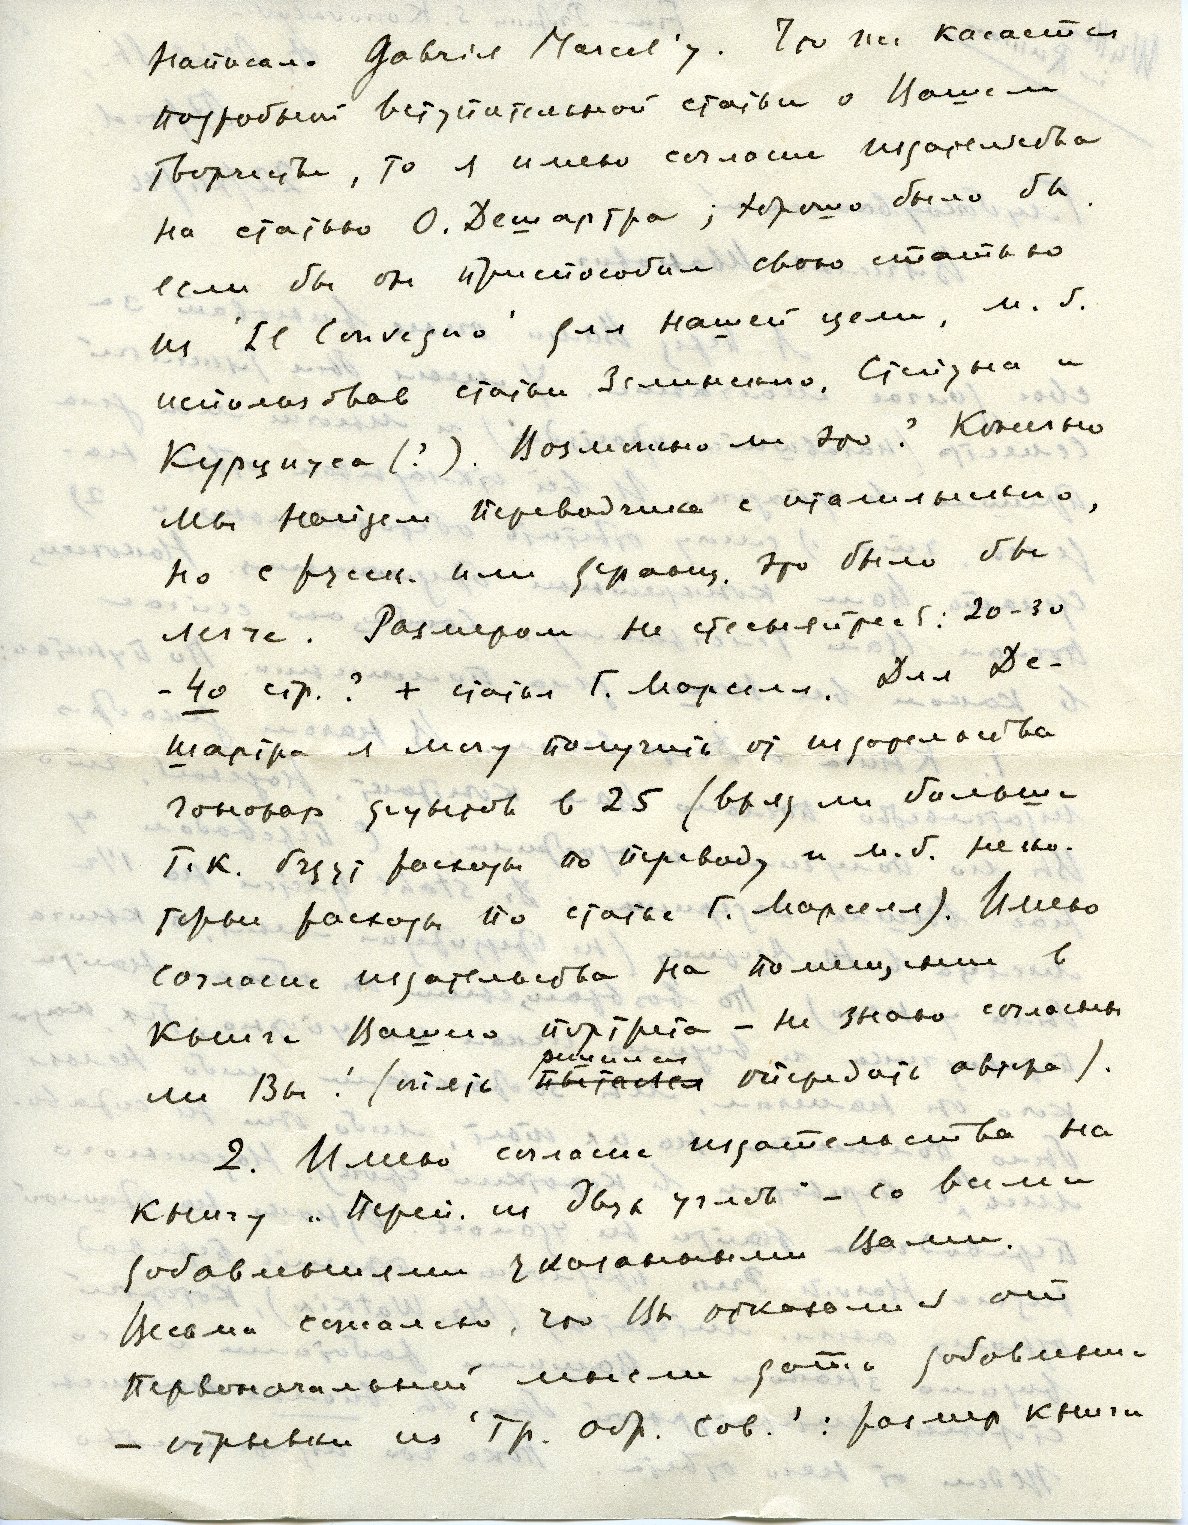 написал Gabriel Marcel'у. Что же касается
подробной вступительной статьи о Вашем
творчестве, то я имею согласие издательства
на статью О. Дешартра; хорошо было бы
если бы он приспособил свою статью
из 'Il Convegno' для нашей цели, м. б.
использовав статьи Зелинского, Степуна и
Курциуса (?). Возможно ли это? Конечно
мы найдем переводчика с итальянского,
но с русск. или франц. это было бы
легче. Размером не стесняйтесь: 20-30
-40 стр.? + статья Г. Марселя. Для Де-
шартра я могу получить от издательства
гонорар фунтов в 25 (вряд ли больше
т.к. будут расходы по переводу и м.б. неко-
торые расходы по статье Г. Марселя). Имею
согласие издательства на помещение в
книге Вашего портрета – не знаю согласны
решился
ли Вы! (опять пытаюсь опередить автора).
2. Имею согласие издательства на
книгу „Переп. из двух углов" – со всеми
добавлениями указанными Вами.
Весьма сожалею, что Вы отказались от
первоначальной мысли дать добавление
– отрывки из 'Гр. обр. сов.': размер книги